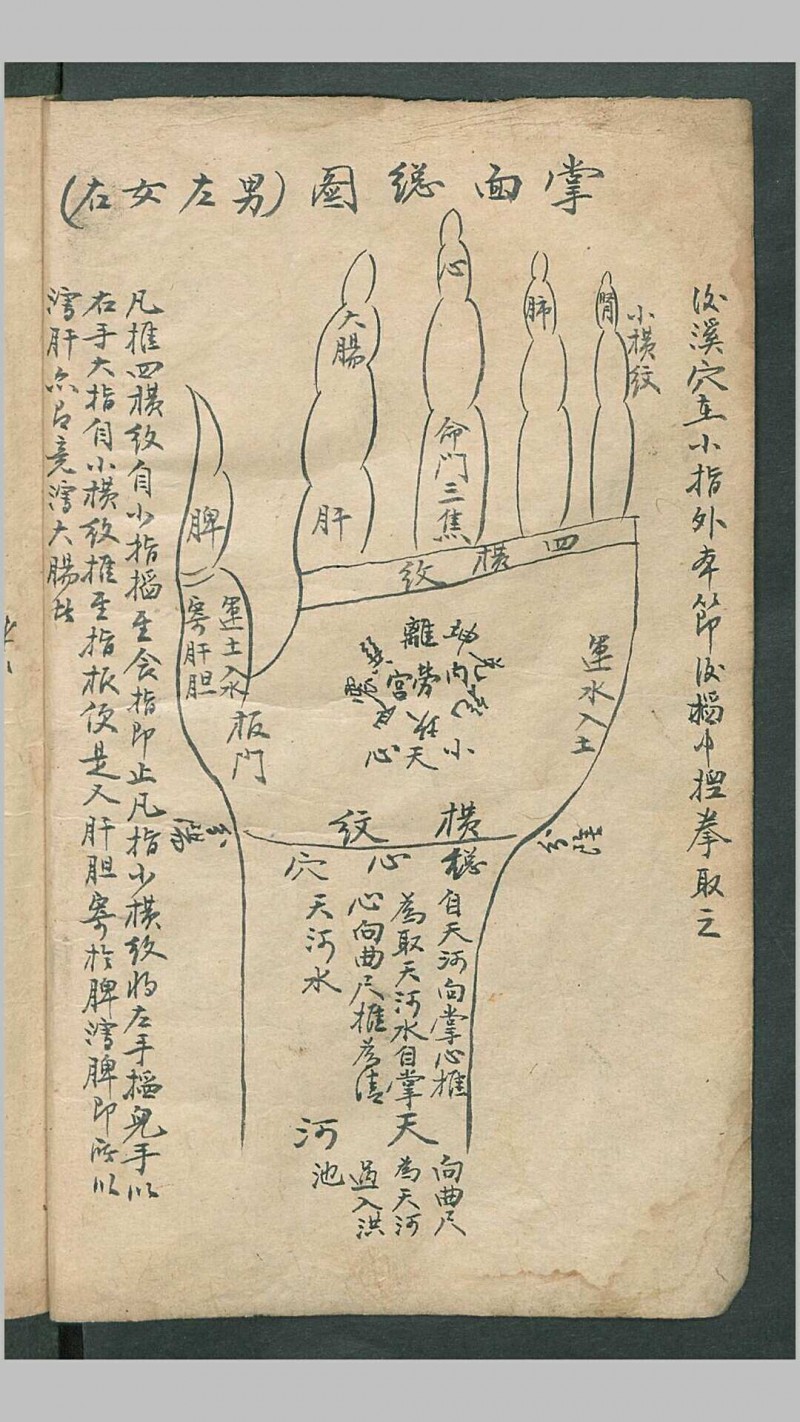 掌面総圖(男左女右)
後溪穴在小指外本節後搯中揑拳取之
小橫纹
腎
肺
心
命門三焦
大腸
肝
脾
四橫纹
運土入水
寄肝胆
板門
離
内
劳
宫
小天心
運水入土
橫纹
総心穴
自天河向掌心推
為取天河水自掌
心向曲尺推為清
天河水
天河
向曲尺
為天河
過入洪
池
凡推四橫纹自小指搯至食指即止凡指小橫纹将左手搯兒手以
右手大指自小橫纹推至指根便是又肝胆寄於脾瀉脾即所以
瀉肝亦以瀉大腸